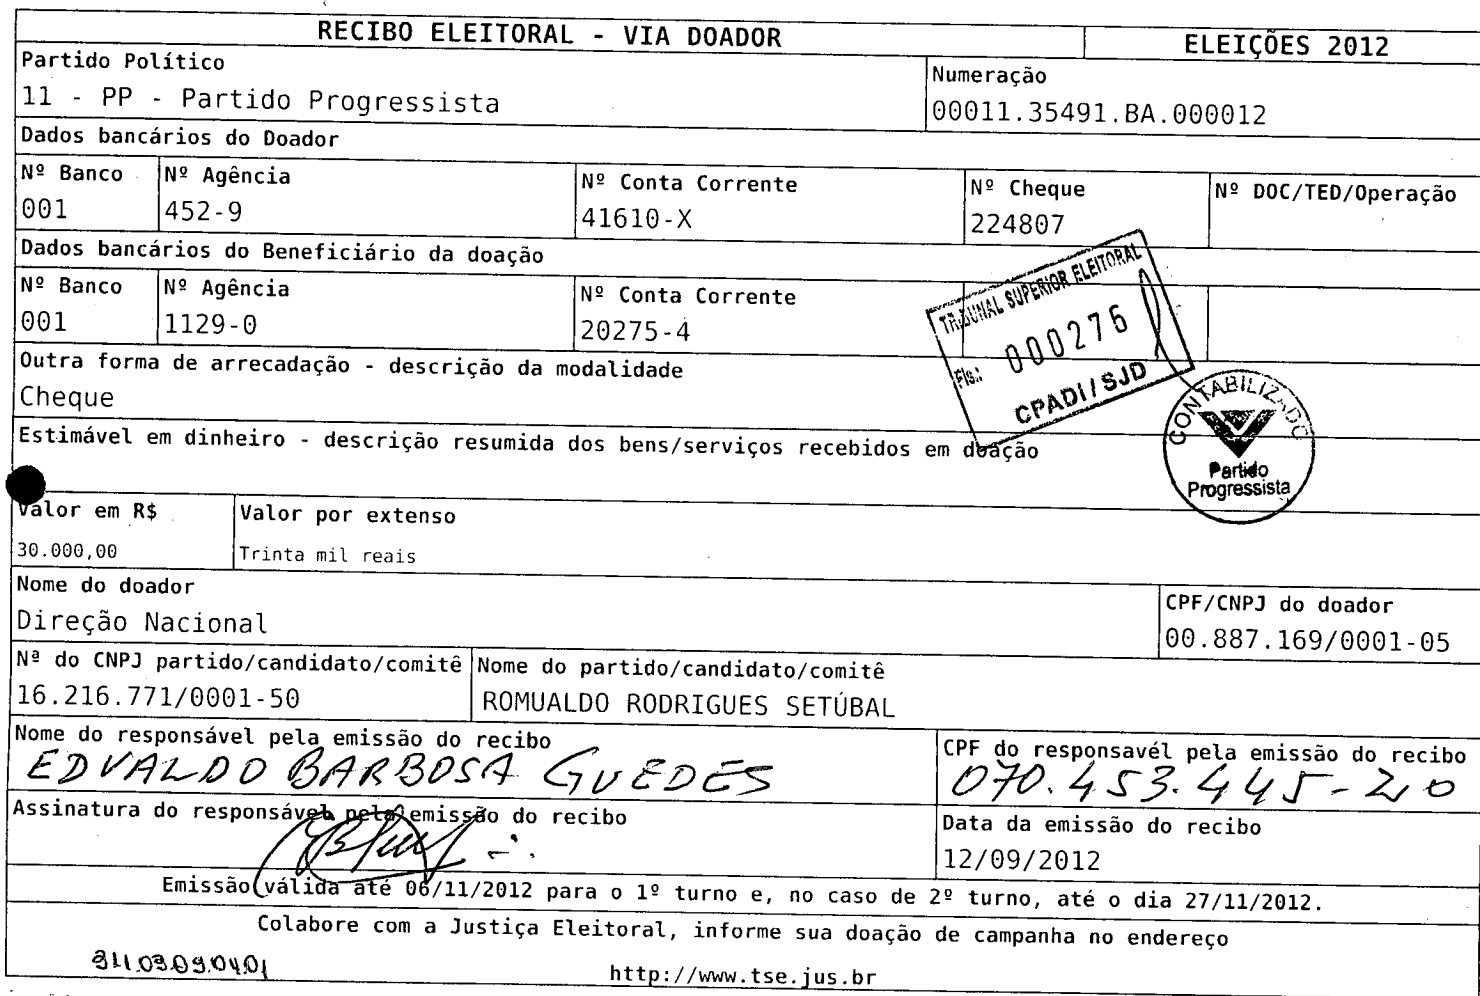 RECIBO ELEITORAL - VIA DOADOR
ELEIÇÕES 2012
Partido Político
11 - PP - Partido Progressista
Numeração
00011.35491.BA.000012
Dados bancários do Doador
Nº Banco Nº Agência Nº Conta Corrente Nº Cheque Nº DOC/TED/Operação
001 452-9 41610-X 224807
Dados bancários do Beneficiário da doação
Nº Banco Nº Agência Nº Conta Corrente
001 1129-0 20275-4
TRIBUNAL SUPERIOR ELEITORAL
Fls.: 000276
CPADI/SJD
Outra forma de arrecadação - descrição da modalidade
Cheque
CONTABILIZADO
Partido
Progressista
Estimável em dinheiro - descrição resumida dos bens/serviços recebidos em doação
Valor em R$ Valor por extenso
30.000,00 Trinta mil reais
Nome do doador
Direção Nacional
CPF/CNPJ do doador
00.887.169/0001-05
Nª do CNPJ partido/candidato/comitê Nome do partido/candidato/comitê
16.216.771/0001-50 ROMUALDO RODRIGUES SETÚBAL
Nome do responsável pela emissão do recibo
EDVALDO BARBOSA GUEDES
CPF do responsavél pela emissão do recibo
070.453.445-20
Assinatura do responsável pela emissão do recibo
Data da emissão do recibo
12/09/2012
Emissão válida até 06/11/2012 para o 1º turno e, no caso de 2º turno, até o dia 27/11/2012.
Colabore com a Justiça Eleitoral, informe sua doação de campanha no endereço
http://www.tse.jus.br